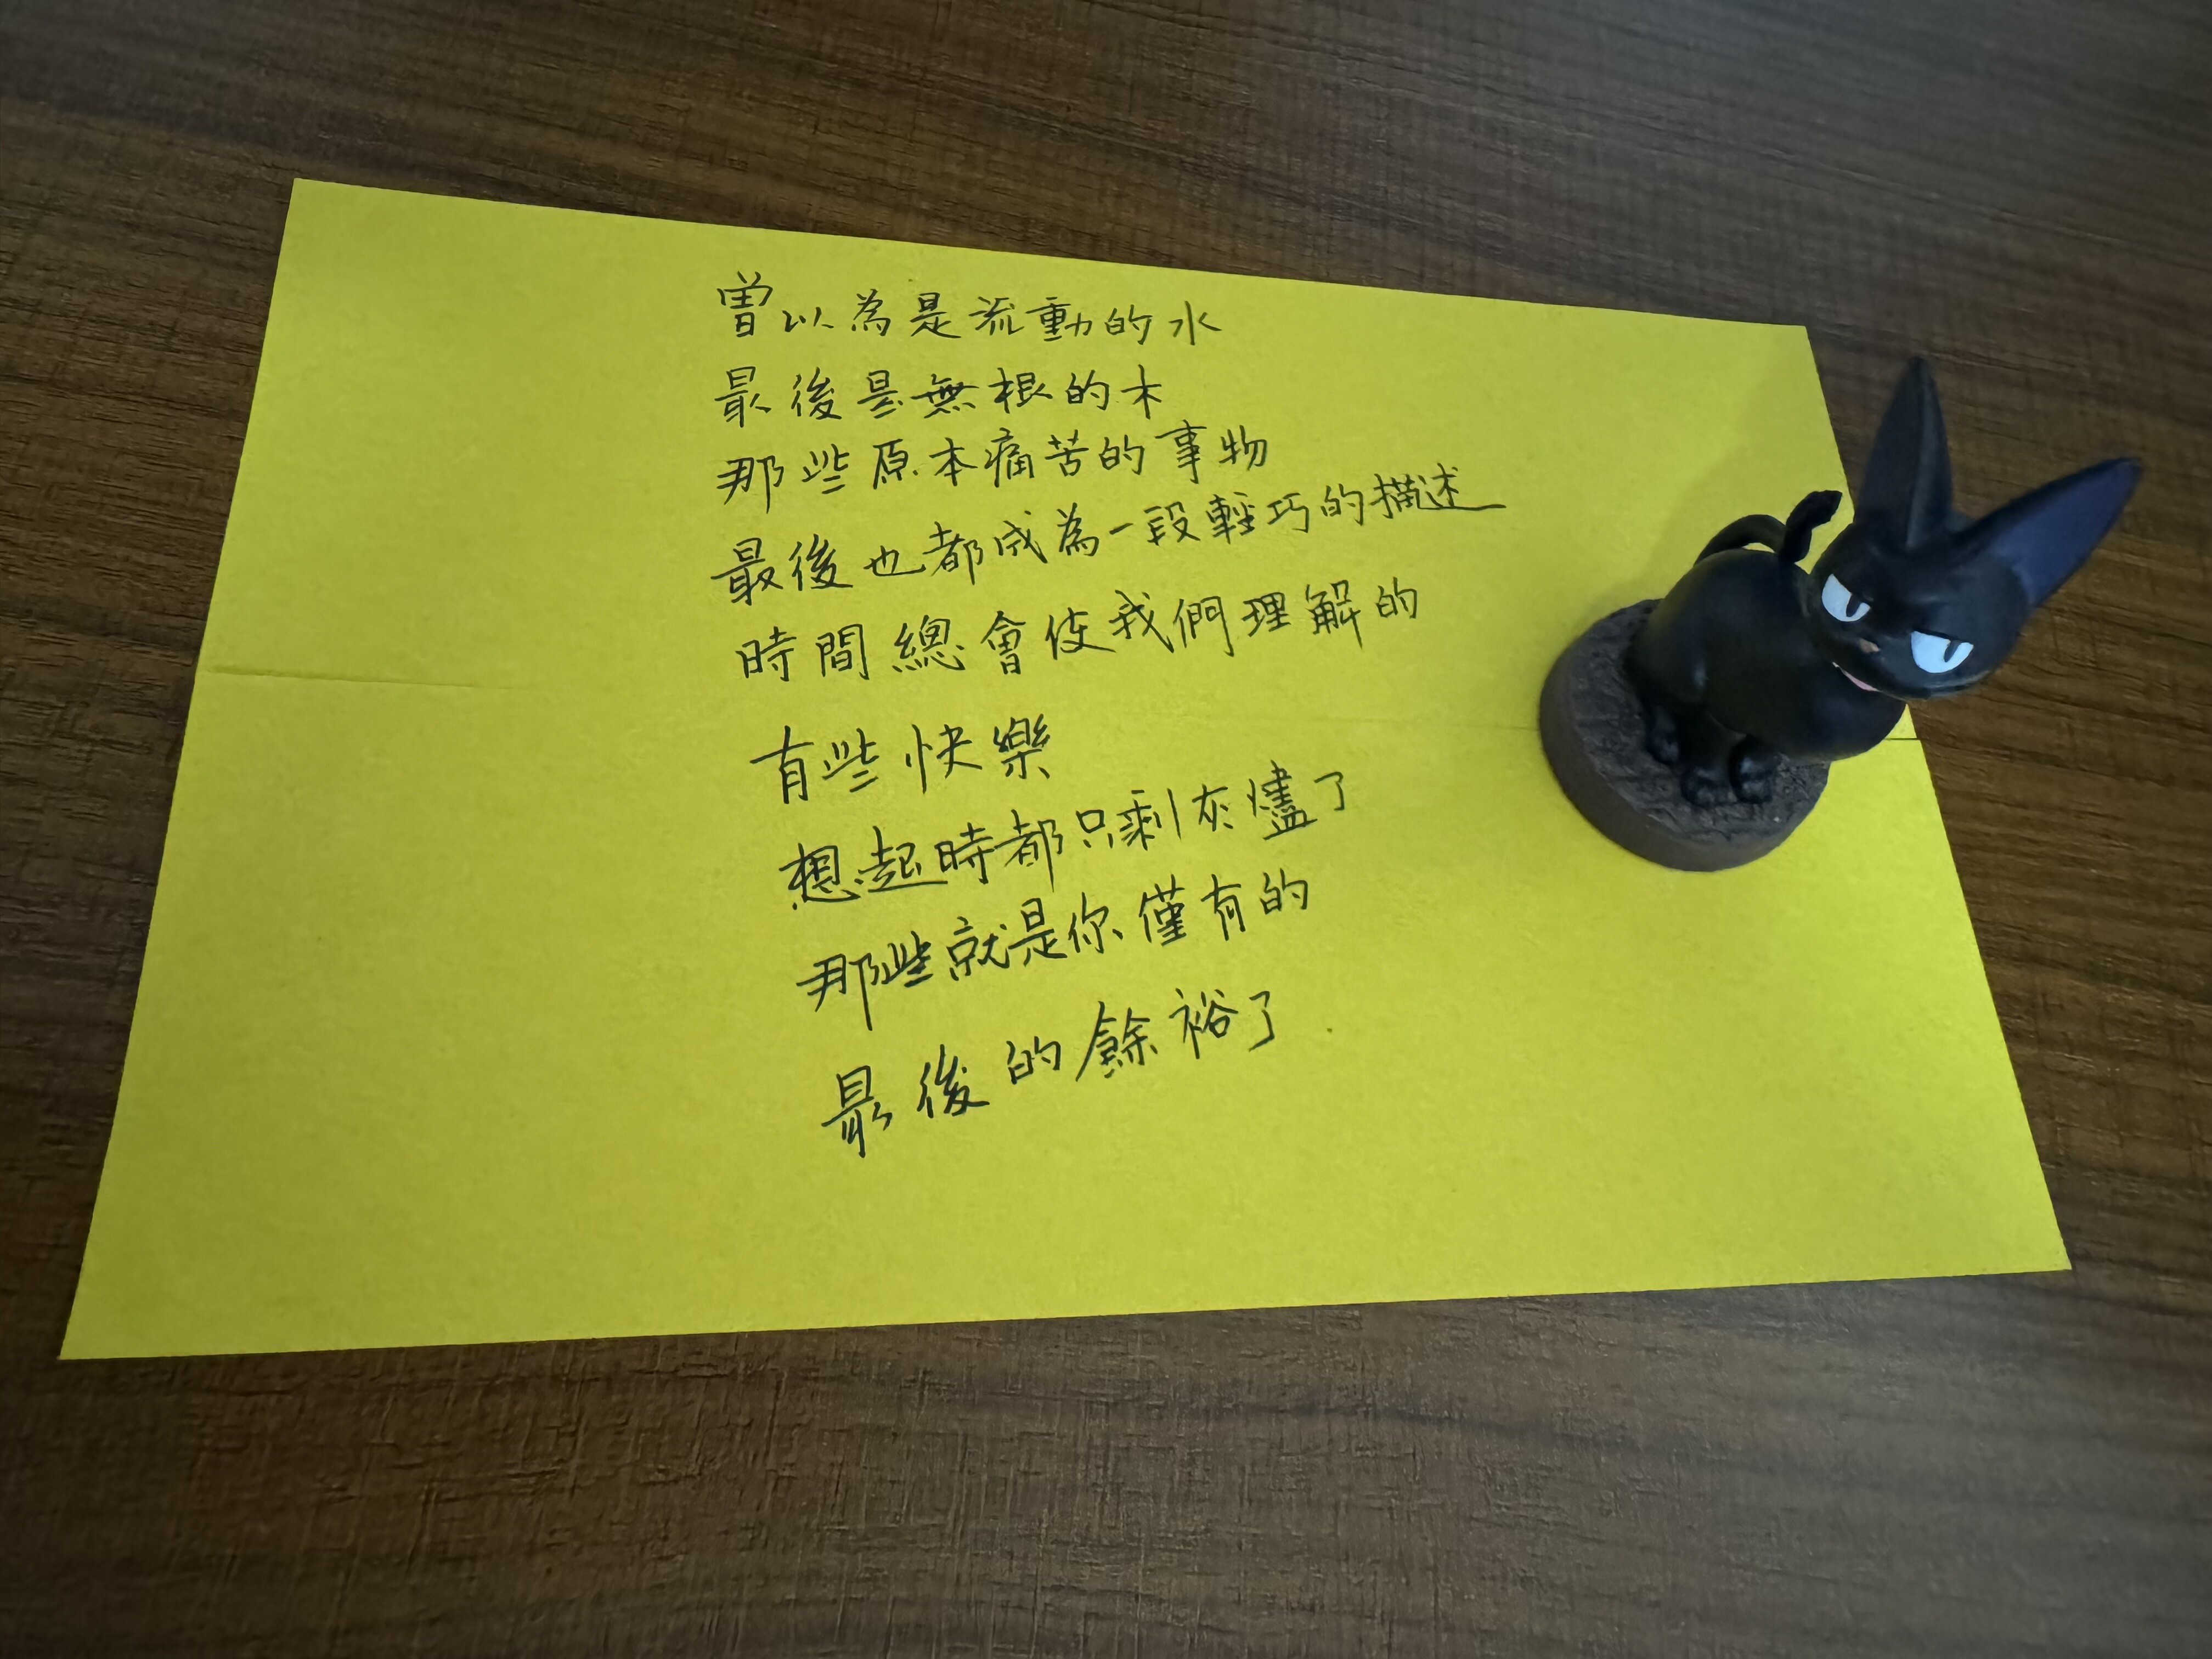 曾以為是流動的水
最後是無根的木
那些原本痛苦的事物
最後也都成為一段輕巧的描述
時間總會使我們理解的
有些快樂
想起時都只剩灰燼了
那些就是你僅有的
最後的餘裕了